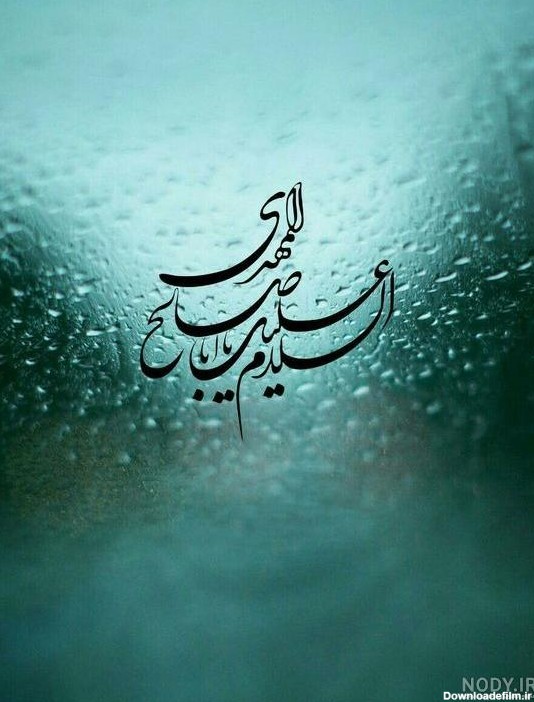 السلام علیک یا اباصالح المهدی
NODY.IR
Downloadefilm.ir